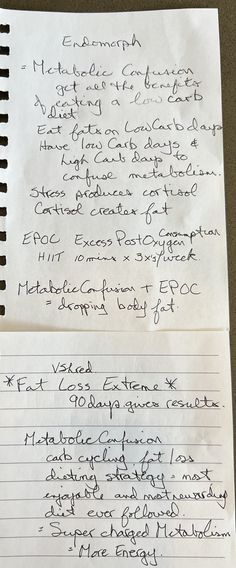 Endomorph
= Metabolic Confusion
get all the benefits
of eating a low carb
diet
Eat fats on Low Carb days
Have low Carb days &
high Carb days to
confuse metabolism.
Stress produces cortisol
Cortisol creates fat
EPOC Excess Post Oxygen Consumption
HIIT 10 mins x 3x's/week.
Metabolic Confusion + EPOC
= dropping body fat.
VShred
*Fat Loss Extreme*
90 days gives results.
Metabolic Confusion
carb cycling fat loss
dieting strategy = most
enjoyable and most rewarding
diet ever followed.
= Super charged Metabolism
= More Energy.